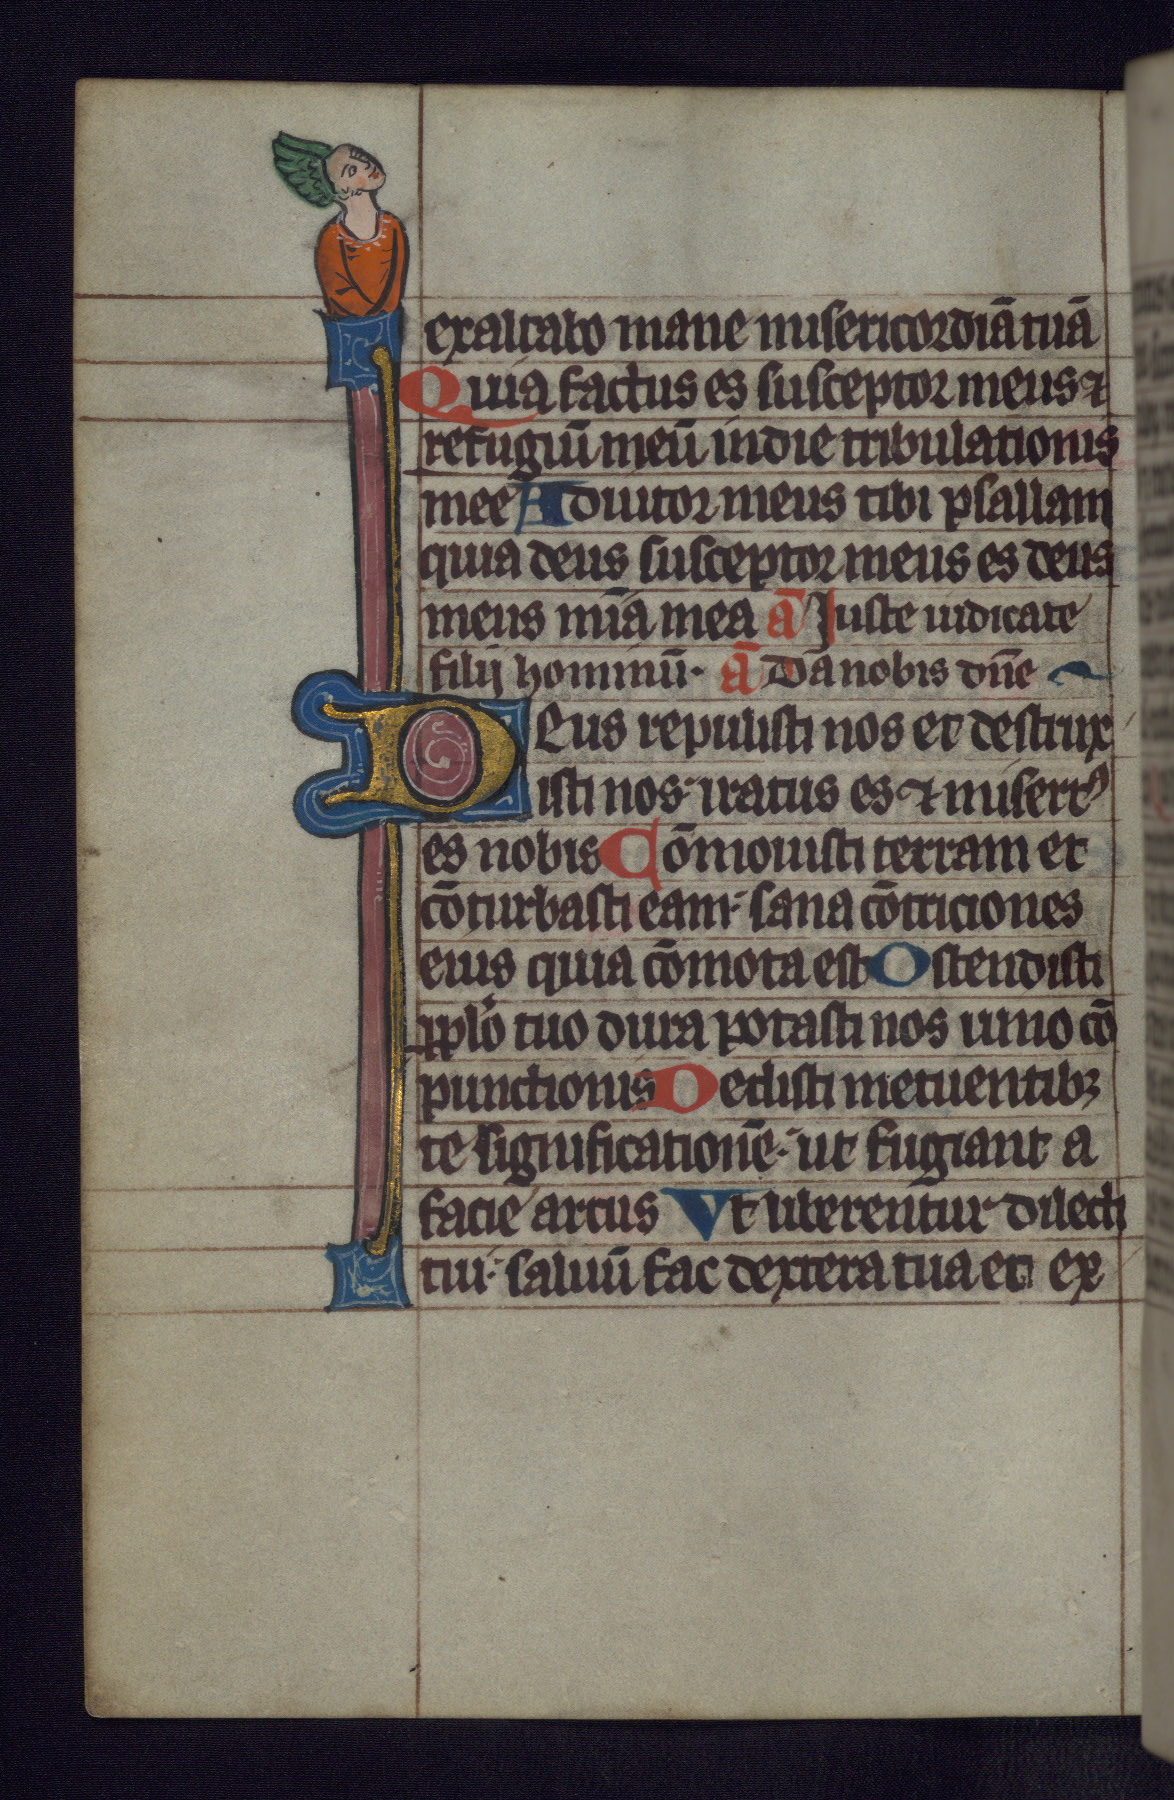 exaltabo mane misericordiā tuā
Quia factus es susceptor meus ⁊
refugiū meū in die tribulationis
mee Adiutor meus tibi psallam
quia deus susceptor meus es deus
meus mīa mea ā Juste iudicate
filij hominū· ā Da nobis dn̄e
Deus repulisti nos et destrux
isti nos· iratus es ⁊ misertꝰ
es nobis Cōmouisti terram et
cōturbasti eam· sana cōtriciones
eius quia cōmota est Ostendisti
pplo tuo dura potasti nos uino cō
punctionis Dedisti metuentibꝫ
te significationē· ut fugiant a
facie arcus Vt liberentur dilecti
tui· saluū fac dextera tua et ex